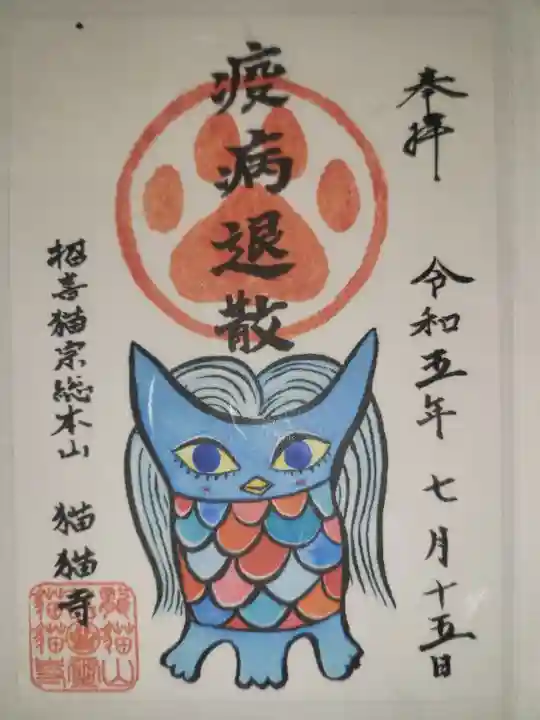 奉拝
令和五年 七月十五日
疫病退散
招喜猫宗総本山 猫猫寺